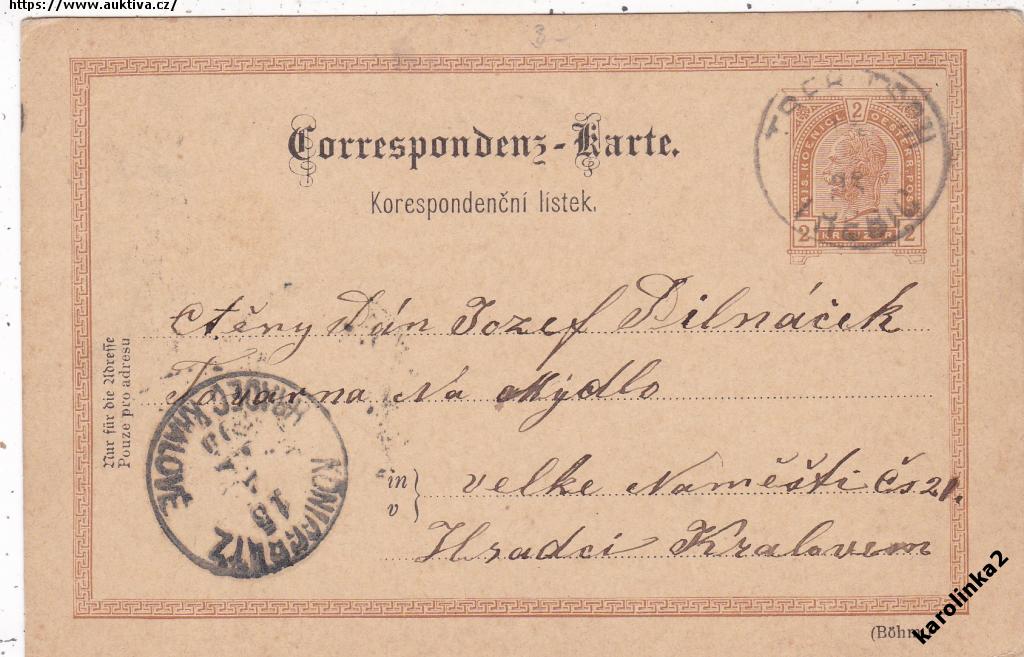 https://www.auktiva.cz/
3-
Correspondenz-Karte.
Korespondenční lístek.
2
KAIS. KOENIGL. OESTERR. POST
2 KREUZER 2
Nur für die Adresse
Pouze pro adresu
Ctěny Pán Jozef Pilnáček
Továrna Na Mýdlo
in
v
velke Naměšti čs 21.
Hradci Kralovem
KÖNIGGRÄTZ
HRADEC KRÁLOVÉ
15
(Böhm.
karolinka2